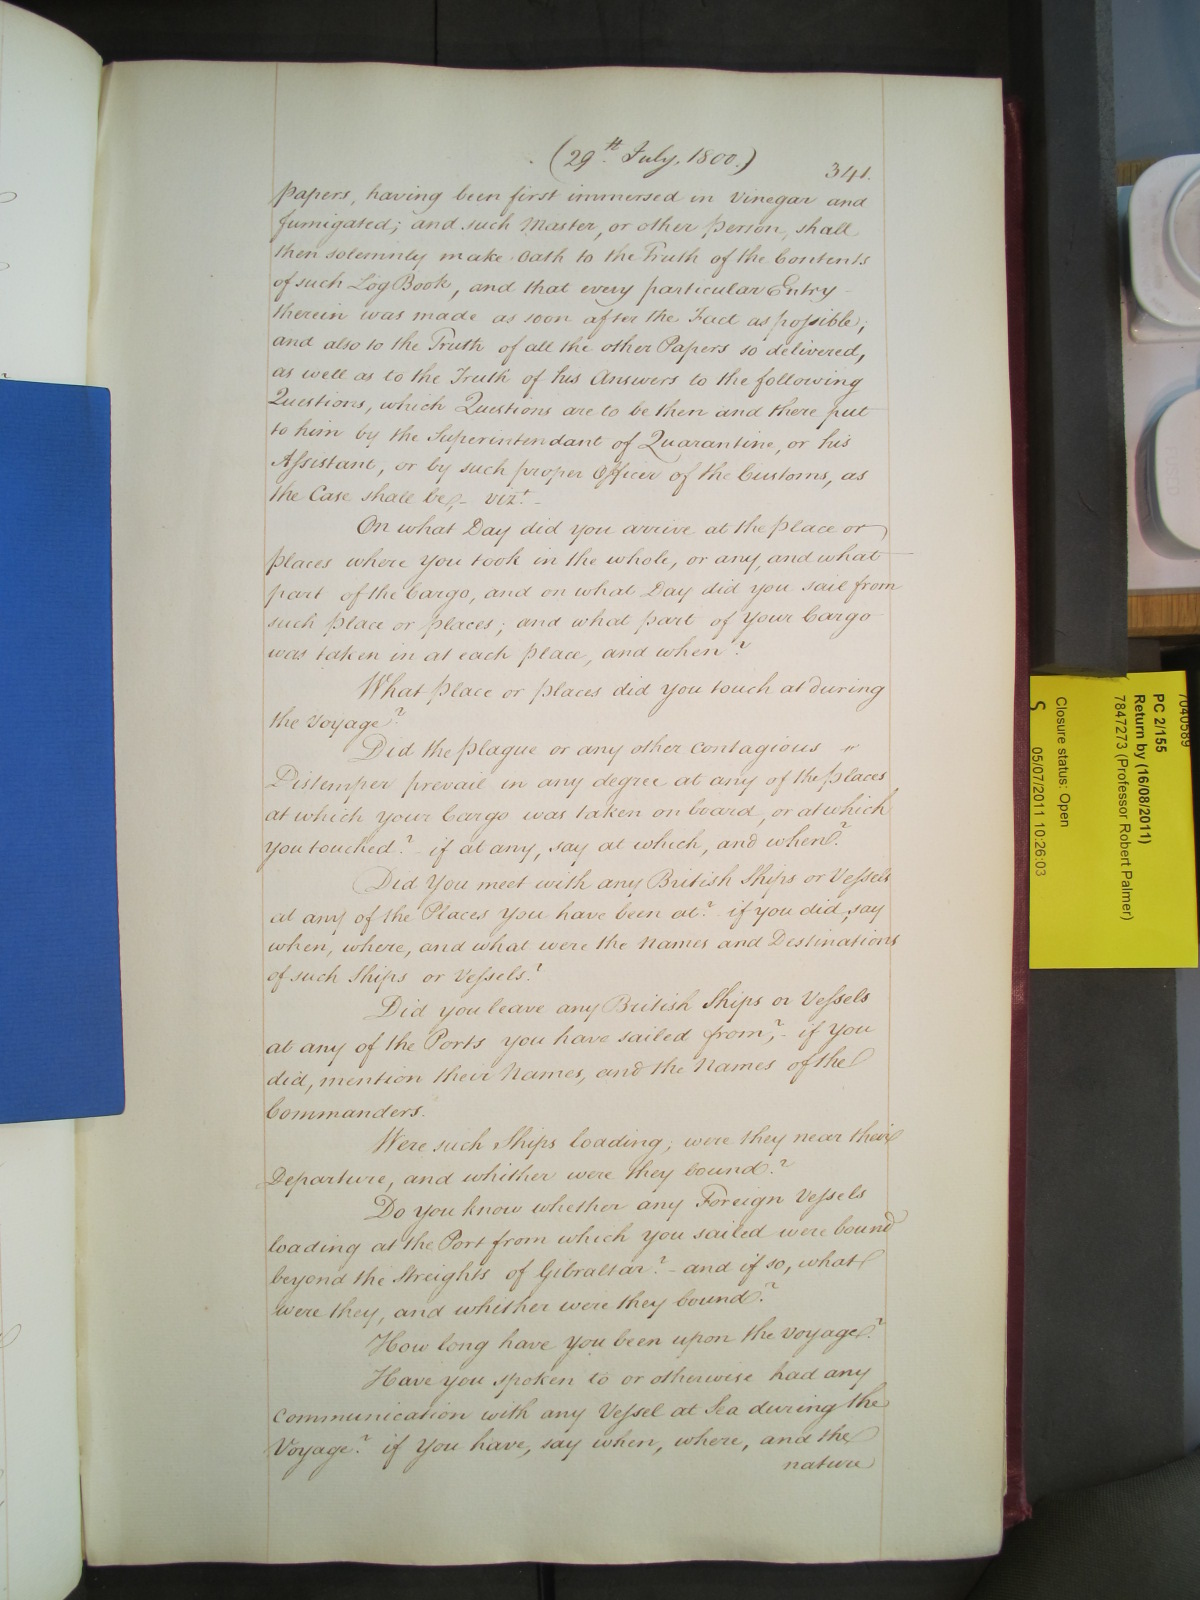 (29th July, 1800.)
341.
papers, having been first immersed in Vinegar and
fumigated; and such Master, or other person, shall
then solemnly make Oath to the Truth of the Contents
of such Log Book, and that every particular Entry
therein was made as soon after the Fact as possible;
and also to the Truth of all the other Papers so delivered,
as well as to the Truth of his Answers to the following
Questions, which Questions are to be then and there put
to him by the Superintendant of Quarantine, or his
Assistant, or by such proper Officer of the Customs, as
the Case shall be,- vizt.-
On what Day did you arrive at the place or
places where you took in the whole, or any, and what
part of the Cargo, and on what Day did you sail from
such place or places; and what part of your Cargo
was taken in at each place, and when?
What place or places did you touch at during
the voyage?
Did the plague or any other contagious "
Distemper prevail in any degree at any of the places
at which your Cargo was taken on board, or at which
you touched? if at any, say at which, and when?
Did You meet with any British Ships or Vessels
at any of the Places you have been at? if you did, say
when, where, and what were the Names and Destinations
of such Ships or Vessels?
Did you leave any British Ships or Vessels
at any of the Ports you have sailed from?- if you
did, mention their Names, and the Names of the
Commanders.
Were such Ships loading; were they near their
Departure, and whither were they bound?
Do you know whether any Foreign Vessels
loading at the Port from which you sailed were bound
beyond the Streights of Gibraltar?- and if so, what
were they, and whither were they bound?
How long have you been upon the voyage?
Have you spoken to or otherwise had any
communication with any Vessel at Sea during the
Voyage? if You have, say when, where, and the
nature
7040589
PC 2/155
Return by (16/08/2011)
7847273 (Professor Robert Palmer)
Closure status: Open
S 05/07/2011 10:26:03